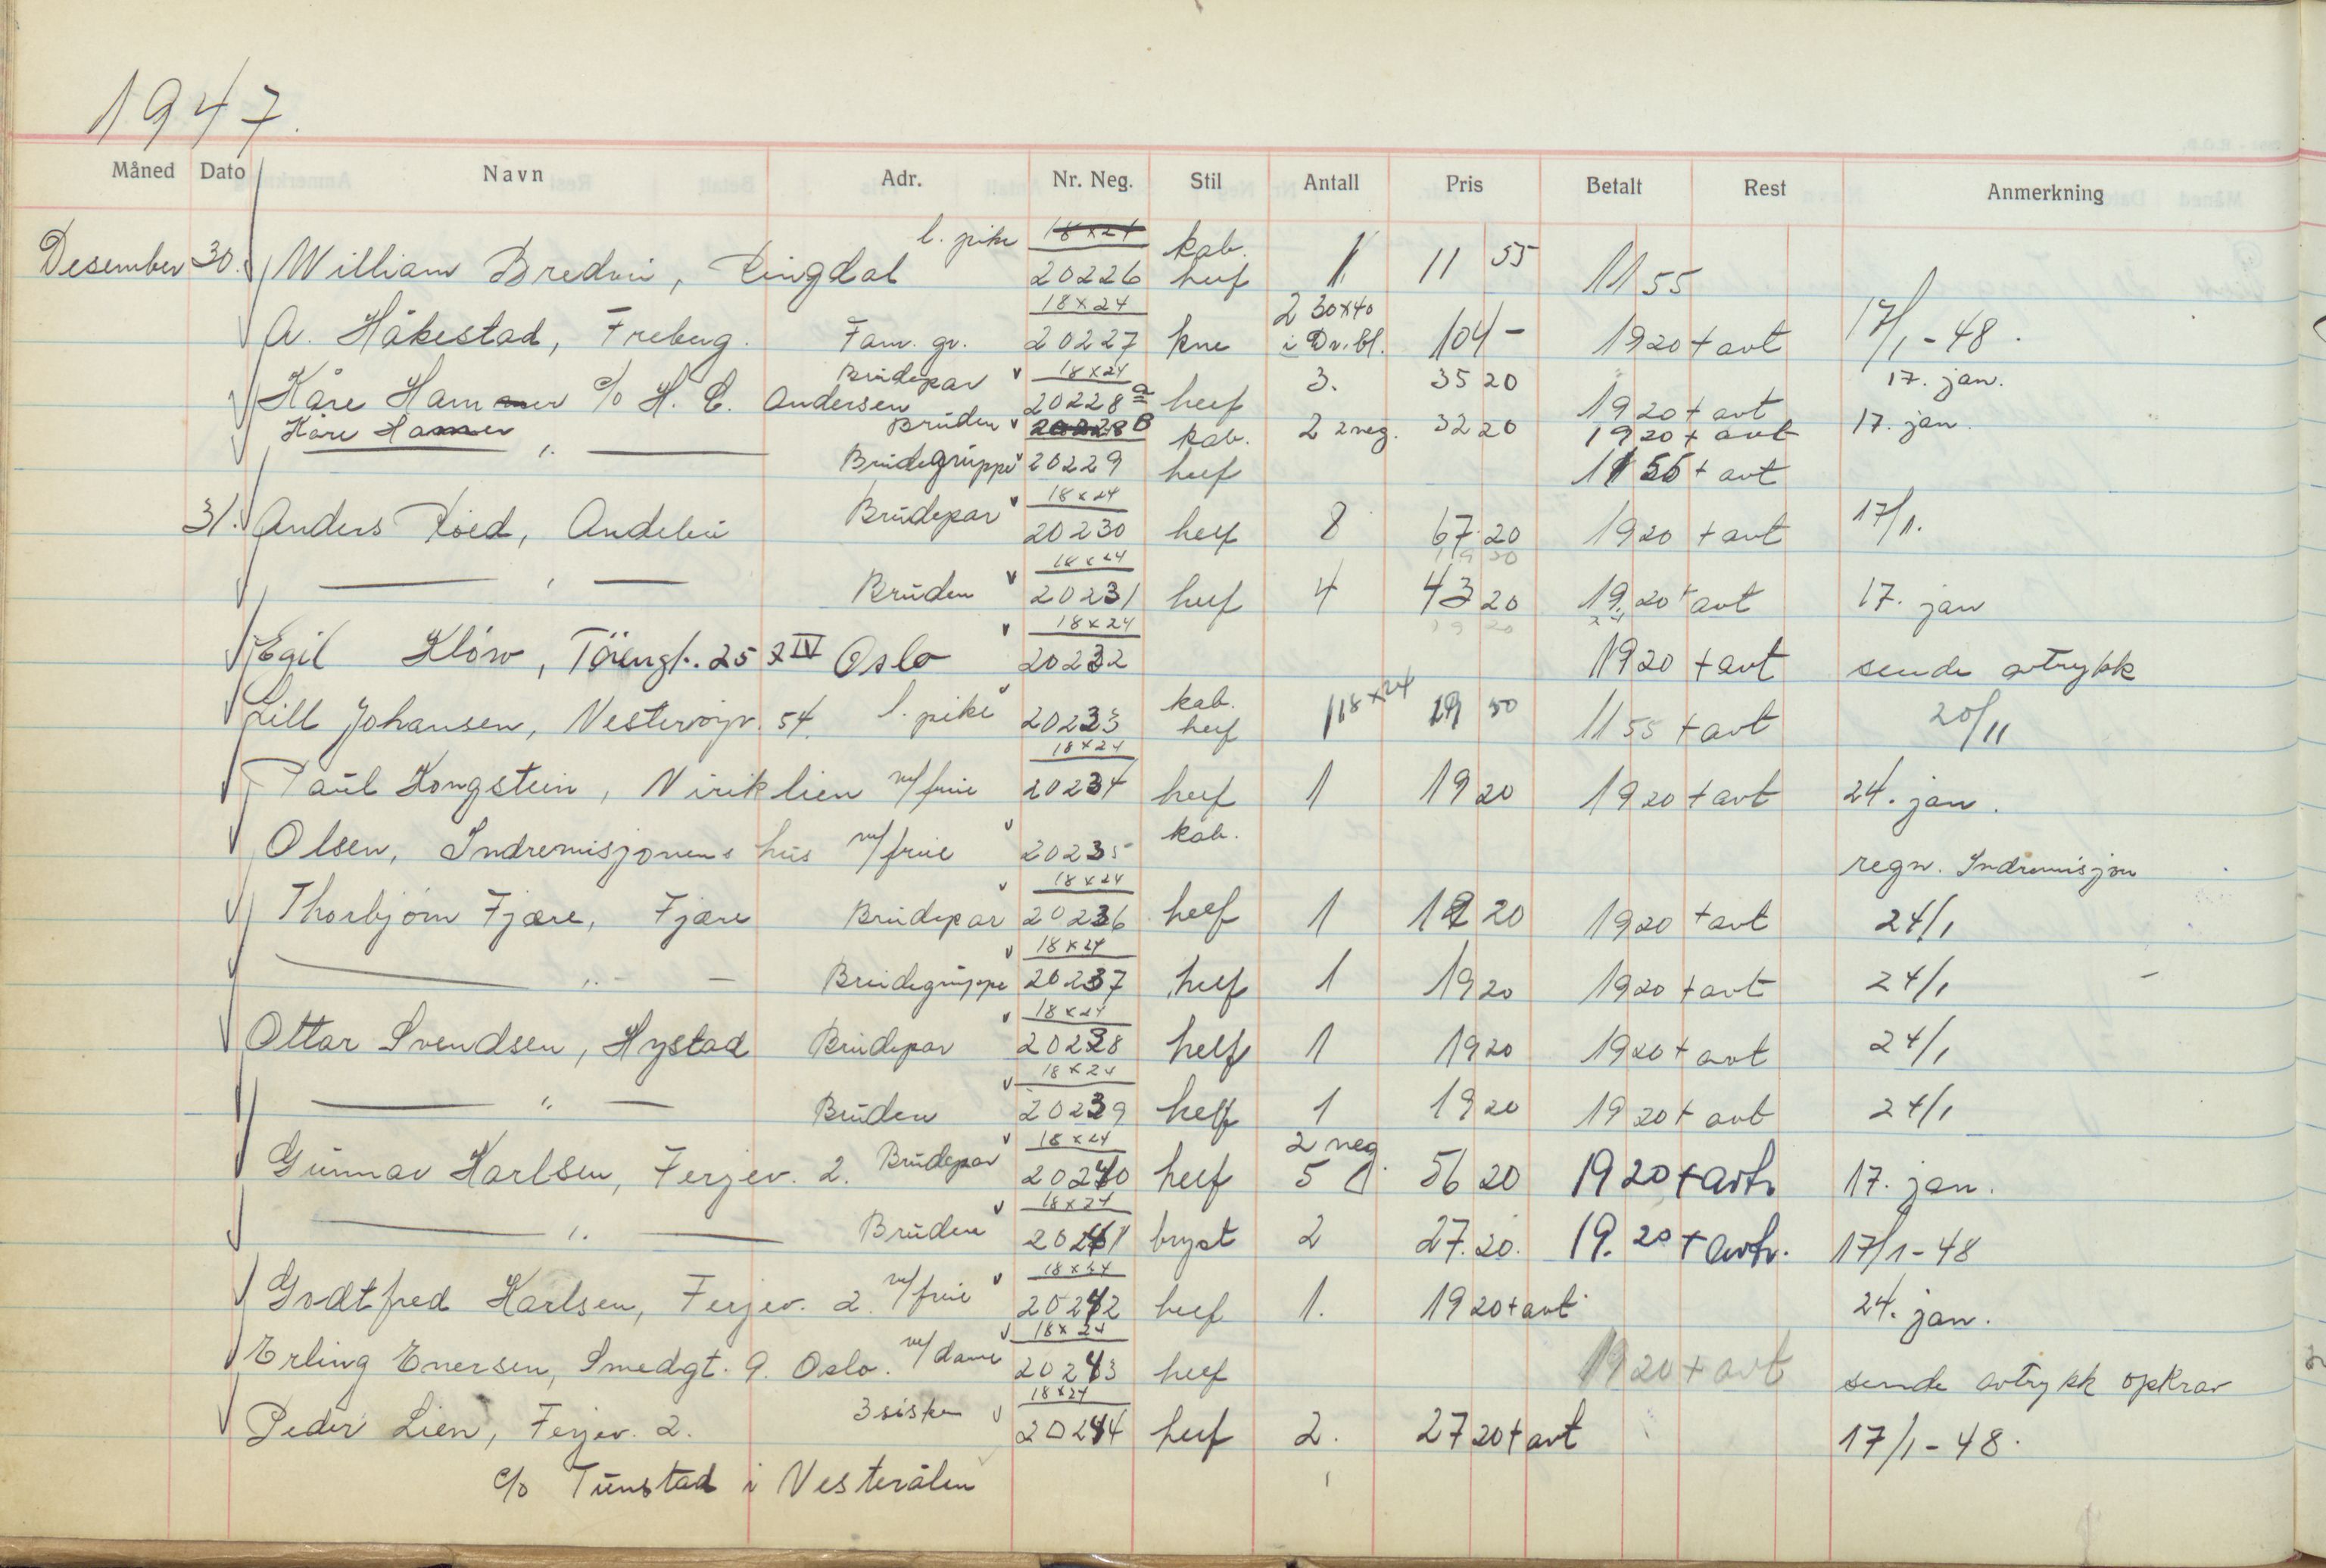 1947.
Måned Dato Navn Adr. Nr. Neg. Stil Antall Pris Betalt Rest Anmerkning
l. pike 18x24 kab.
Desember 30. William Bredvei, Ringdal 20226 helf 1 11 55 11 55
18x24 2 30x40
A. Håkestad, Freberg. Fam. gr. 20227 kne i Dr. bl. 104 - 19 20 + avt 17/1 - 48.
Brudepar 18x24
Kåre Hammer c/o H. C. Andersen 20228 a helf 3. 35 20 19 20 + avt 17. jan.
Kåre Hamer " Bruden 20228 B kab. 2 2 neg. 32 20 19 20 + avt 17. jan.
Brudegruppe 20229 helf 11 55 + avt
18x24
31. Anders Röed, Andebu Brudepar 20230 helf 8 67 20 19 20 + avt 17/1.
18x24 19 20
" Bruden 20231 helf 4 43 20 19. 20 + avt 17. jan
18x24 19 20
Egil Klöw, 25 IV Oslo 20232 19 20 + avt sende avtrykk
kab.
Lill Johansen, 54. l. pike 20233 helf 1 18x24 19 50 11 55 + avt 20/11
18x24
Paul Kongstein, Viriklien m/frue 20234 helf 1 19 20 19 20 + avt 24. jan.
Olsen, Indremisjonens hus m/frue 20235 kab. regn. Indremisjon
18x24
Thorbjörn Fjære, Fjære Brudepar 20236 helf 1 19 20 19 20 + avt 24/1
18x24
" Brudegruppe 20237 helf 1 19 20 19 20 + avt 24/1
18x24
Ottar Svendsen, Hystad Brudepar 20238 helf 1 19 20 19 20 + avt 24/1
18x24
" Bruden 20239 helf 1 19 20 19 20 + avt 24/1
18x24 2 neg.
Gunnar Karlsen, Ferjev. 2. Brudepar 20240 helf 5 56 20 19 20 + avtr. 17. jan.
18x24
" Bruden 20241 bryst 2 27. 20. 19. 20 + avtr. 17/1-48
18x24
Godtfred Karlsen, Ferjev. 2. m/frue 20242 helf 1. 19 20 + avt 24. jan.
18x24
Erling Enersen, Smedgt. 9. Oslo. m/dame 20243 helf 19 20 + avt sende avtrykk opkrav
18x24
Peder Lien, Ferjev. 2. 3 sisken 20244 helf 2. 27 20 + avt 17/1-48.
c/o Tunstad i Vesterålen